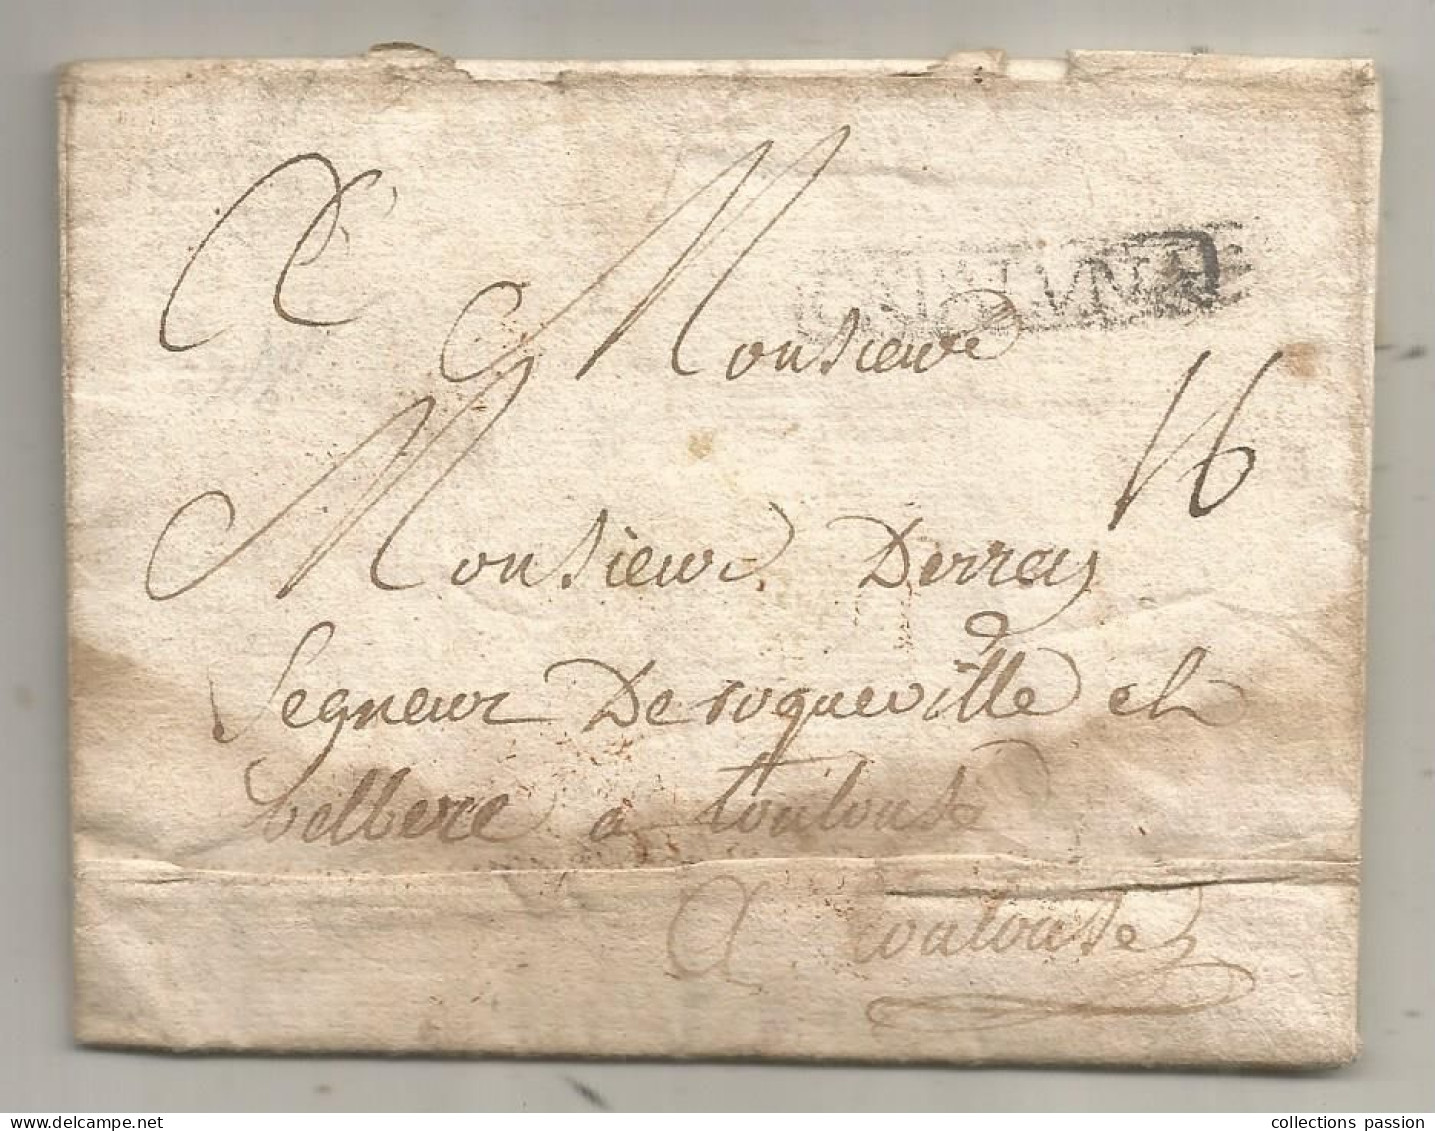 A
Monsieur
16
Monsieur Derrey
Segneur De roqueville et
belbere a toulouse
A Toulouse
delcampe.net
collections passion